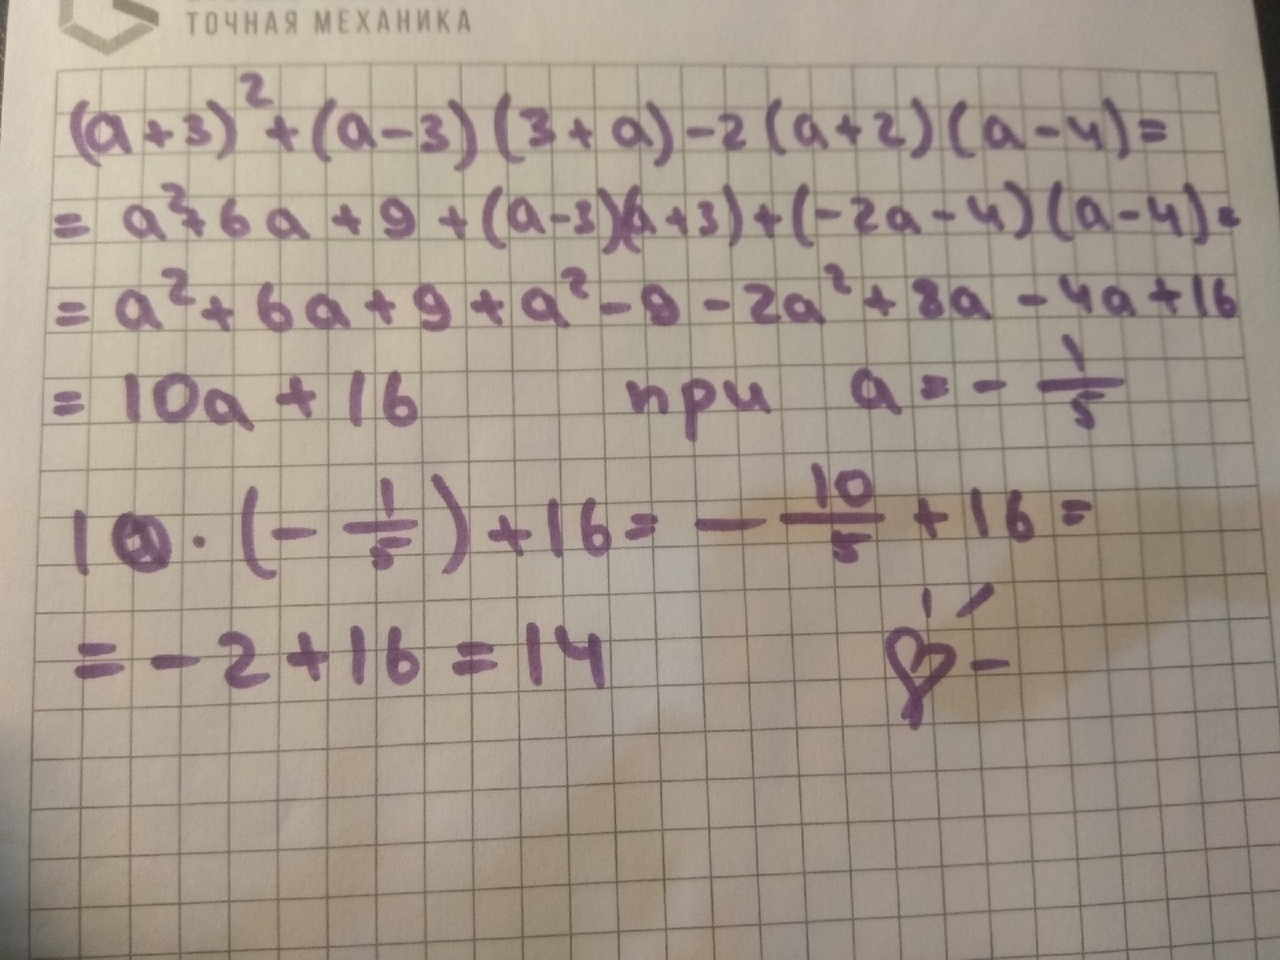 ТОЧНАЯ МЕХАНИКА
(a+3)² + (a-3)(3+a) - 2(a+2)(a-4) =
= a² + 6a + 9 + (a-3)(a+3) + (-2a-4)(a-4) =
= a² + 6a + 9 + a² - 9 - 2a² + 8a - 4a + 16
= 10a + 16 при a = - 1/5
10 · (- 1/5) + 16 = - 10/5 + 16 =
= -2 + 16 = 14